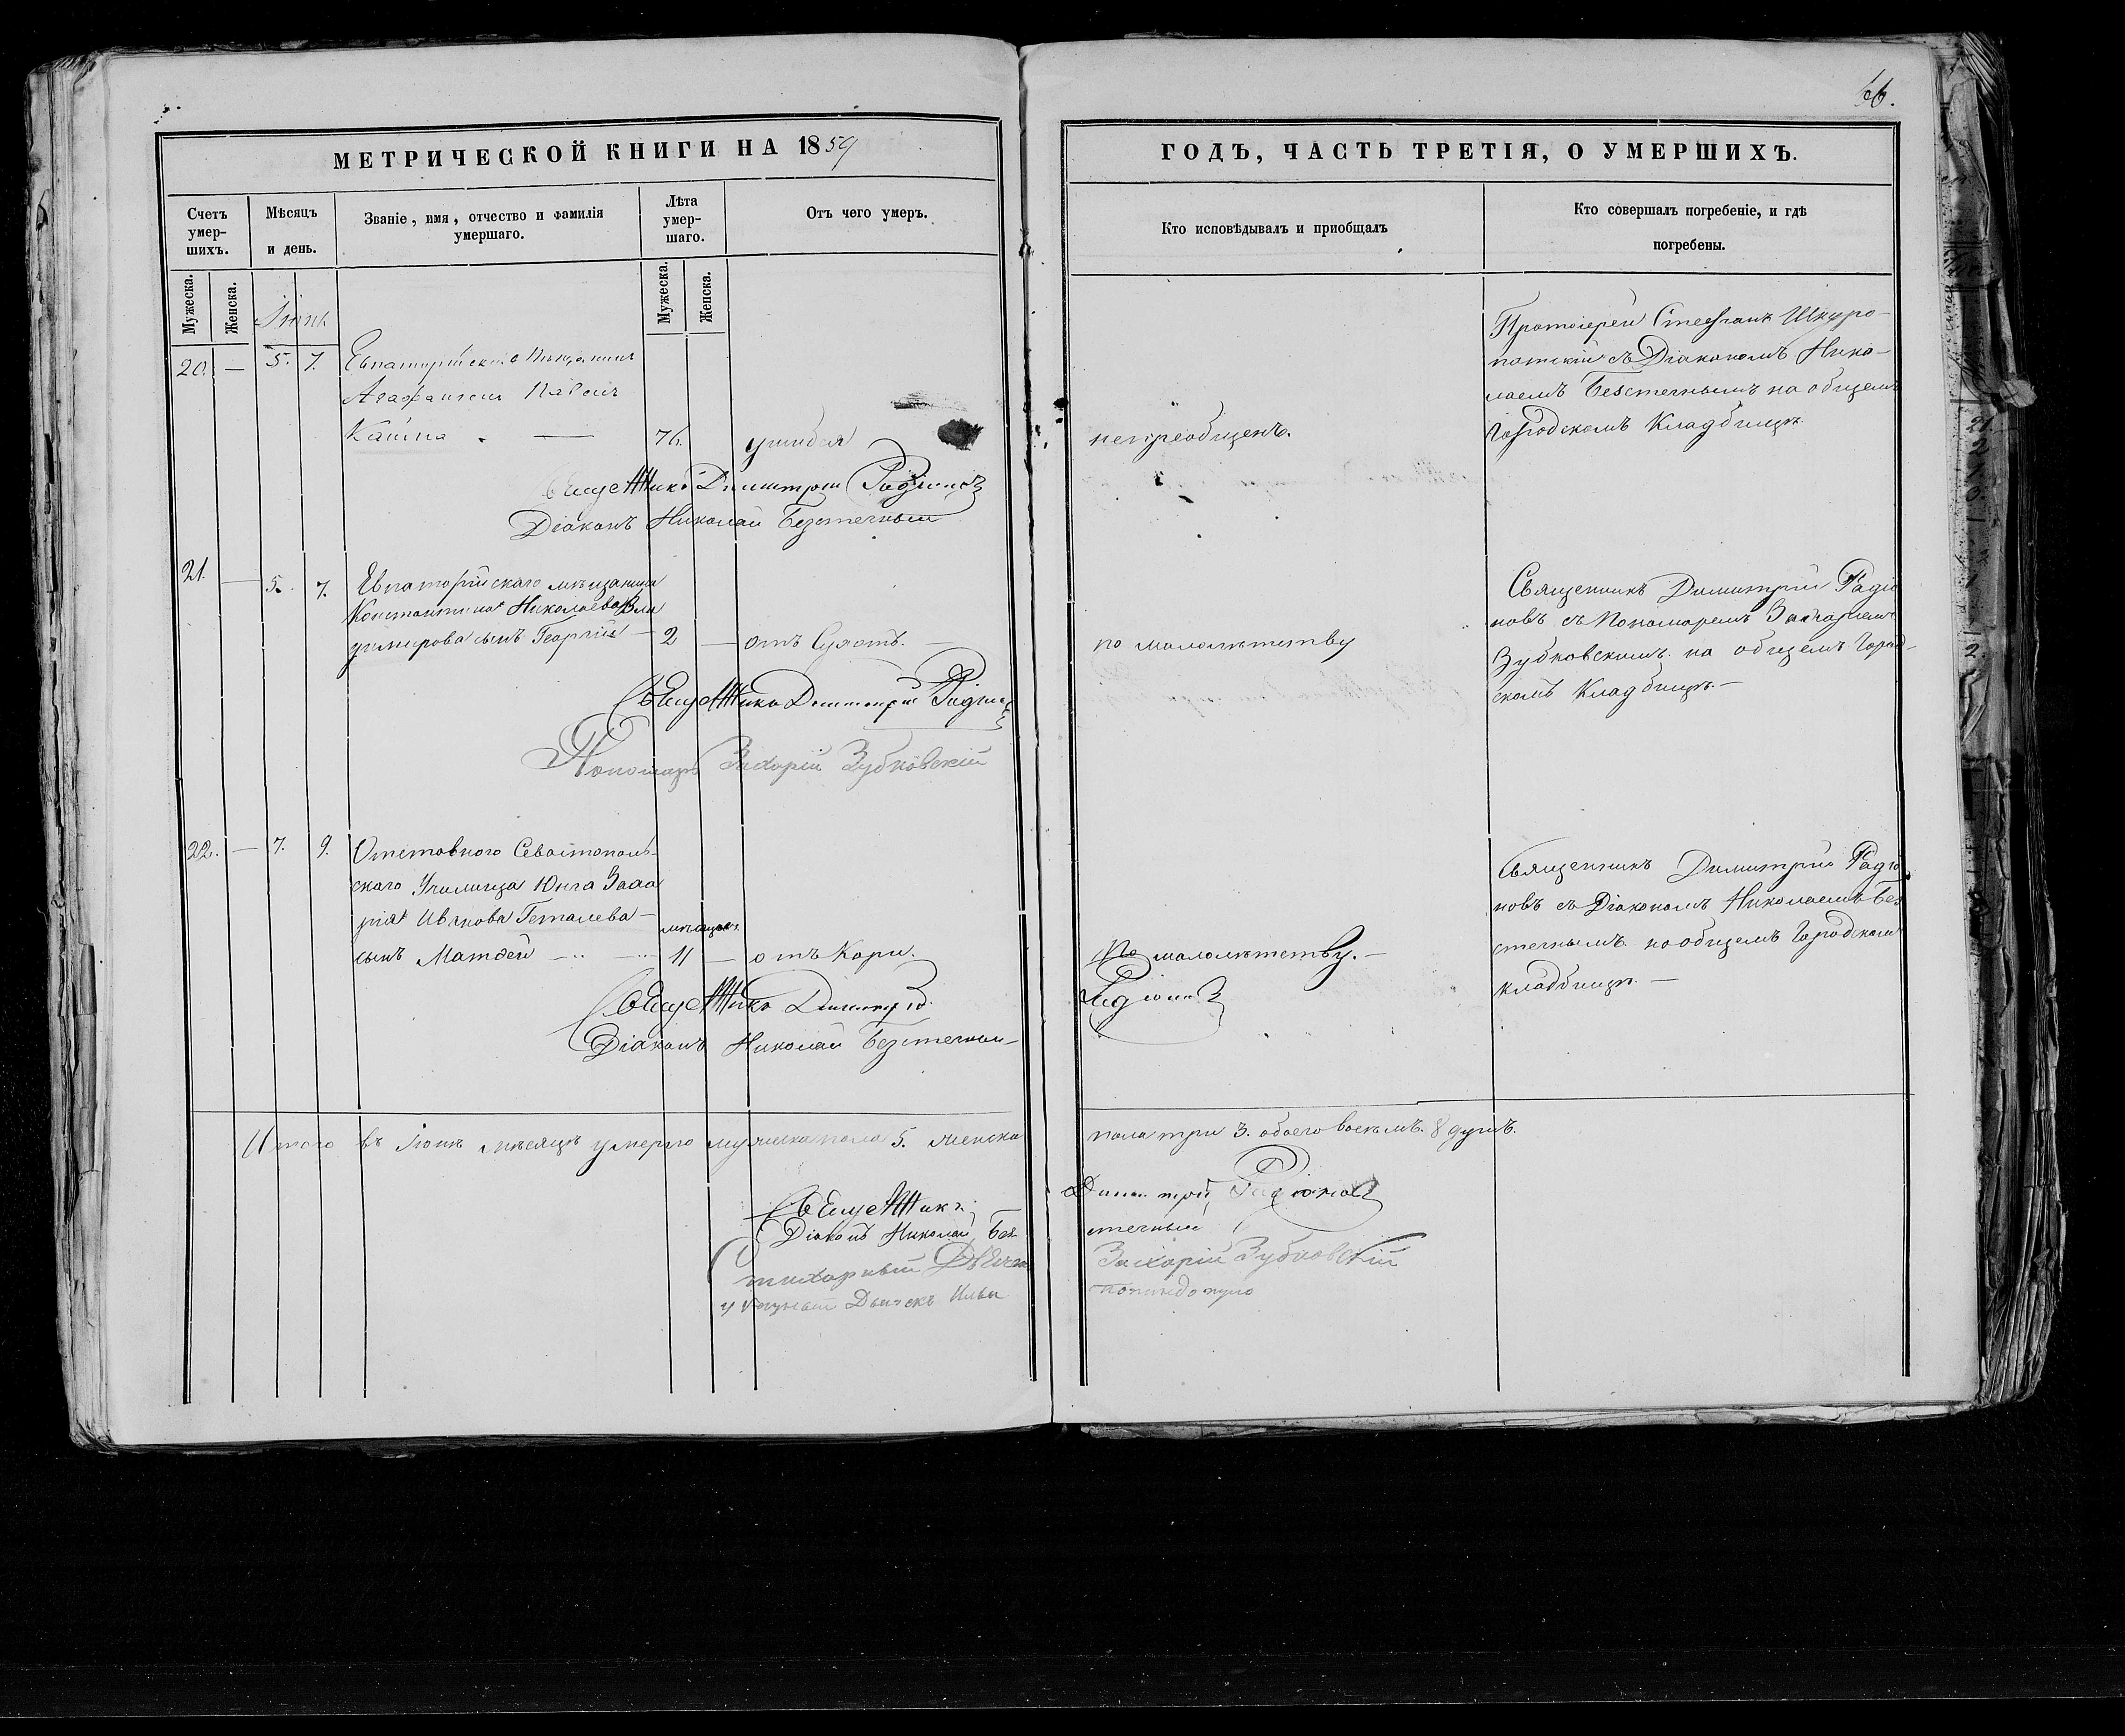 66.
МЕТРИЧЕСКОЙ КНИГИ НА 1859
ГОДЪ, ЧАСТЬ ТРЕТІЯ, О УМЕРШИХЪ.
Счетъ умер-шихъ.
Мѣсяцъ и день.
Званіе, имя, отчество и фамилія умершаго.
Лѣта умер-шаго.
Отъ чего умеръ.
Кто исповѣдывалъ и приобщалъ
Кто совершалъ погребеніе, и гдѣ погребены.
Мужеска.
Женска.
Мужеска.
Женска.
Іюнь
20. — 5. 7. Евпаторійскій мѣщанинъ
76. ушибся
непреобщенъ.
Протоіерей Стефанъ Шкуро-
патскій съ Діакономъ Нико-
лаемъ Безстечнымъ на общемъ
Городскомъ Кладбищѣ.
Священникъ Димитрій Радіоновъ
Діаконъ Николай Безстечный
21. — 5. 7. Евпаторійскаго мѣщанина
Константина Николаева Вла
димирова сынъ Георгій — 2 — отъ Сухотъ. —
по малолѣтству
Священникъ Димитрій Радіо
новъ съ Пономаремъ Захаріемъ
Зубковскимъ на общемъ Город-
скомъ Кладбищѣ. —
Священникъ Димитрій Радіоновъ
Пономарь Захарій Зубковскій
22. — 7. 9. Отставного Севастополь-
скаго Училища Юнга Заха
рія Иванова —
мѣсяцевъ
сынъ Матвей — 11 — отъ Кори.
По малолѣтству. —
Священникъ Димитрій Радіо
новъ съ Діакономъ Николаемъ Без
стечнымъ на общемъ Городскомъ
кладбищѣ. —
Священникъ Димитрій Радіоновъ
Діаконъ Николай Безстечный
Итого въ Іюнѣ мѣсяцѣ умерло мужеска пола 5. женска пола три 3. обоего восемь 8 душъ.
Священникъ Димитрій Радіоновъ
Діаконъ Николай Безстечный
Стихарный Дьячекъ Захарій Зубковскій
Дьячекъ Илья